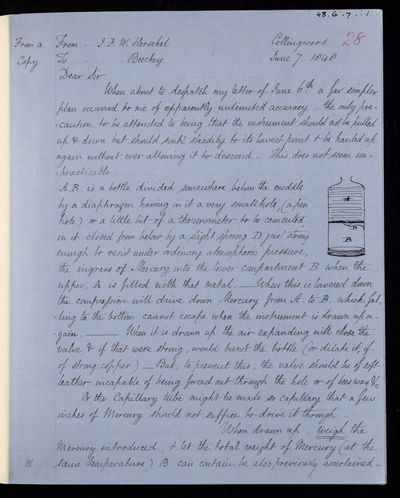 48.6.7..1
28
From a Copy
From .. J. F. W. Herschel Collingwood
To .... Beechey June 7 1848
Dear Sir
When about to despatch my letter of June 6th a far simpler
plan occurred to me of apparently unlimited accuracy – the only pre-
-caution to be attended to being that the instrument should not be pulled
up & down but should sink steadily to its lowest point & be hauled up
again without ever allowing it to descend. This does not seem im-
-practicable.
A.B. is a bottle divided somewhere below the middle
by a diaphragm having in it a very small hole, (a pin
hole) or a little bit of a thermometer to be cemented
in it closed from below by a slight spring D just strong
enough to resist under ordinary atmospheric pressure,
the ingress of Mercury into the lower compartment B when the
upper, A is filled with that metal. — When this is lowered down
the compression will drive down Mercury from A. to B. which fal-
-ling to the bottom cannot escape when the instrument is drawn up a-
-gain. — When it is drawn up the air expanding will close the
valve & if that were strong, would burst the bottle (or dilate it, if
of strong copper) — But, to prevent this, the valve should be of soft
leather incapable of being forced out through the hole or of bees wax &c
Or the Capillary tube might be made so capillary that a few
inches of Mercury should not suffice to drive it through
When drawn up. weigh the
Mercury introduced, & let the total weight of Mercury (at the
same temperature) B. can contain be also previously ascertained –
A
B